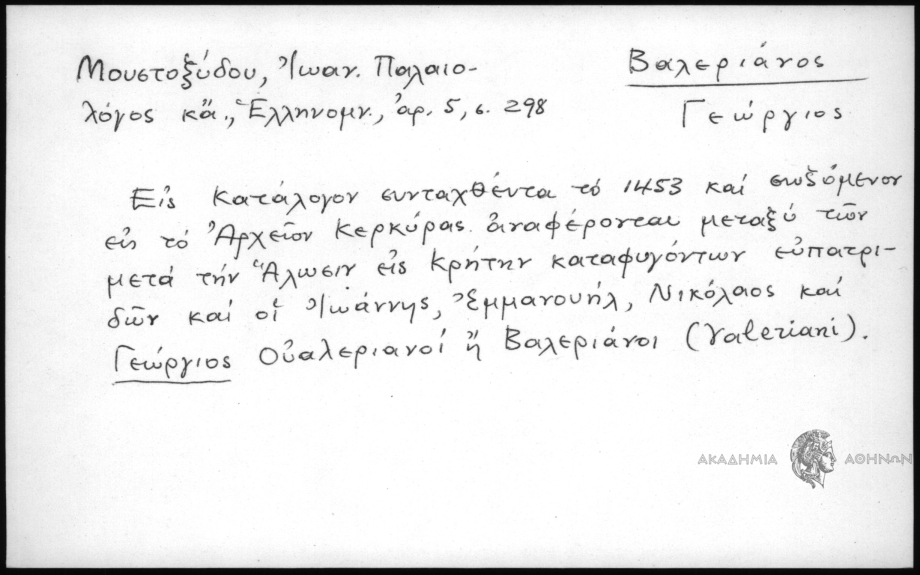 Μουστοξύδου, Ἰωαν. Παλαιο-
λόγος κἄ., Ἑλληνομν., ἀρ. 5, σ. 298
Βαλεριάνος
Γεώργιος
Εἰς κατάλογον συνταχθέντα τό 1453 καί σωζόμενον
εἰς τό Ἀρχεῖον Κερκύρας ἀναφέρονται μεταξύ τῶν
μετά τήν Ἅλωσιν εἰς Κρήτην καταφυγόντων εὐπατρι-
δῶν καί οἱ Ἰωάννης, Ἐμμανουήλ, Νικόλαος καί
Γεώργιος Οὐαλεριανοί ἤ Βαλεριάνοι (Valeriani).
ΑΚΑΔΗΜΙΑ ΑΘΗΝΩΝ